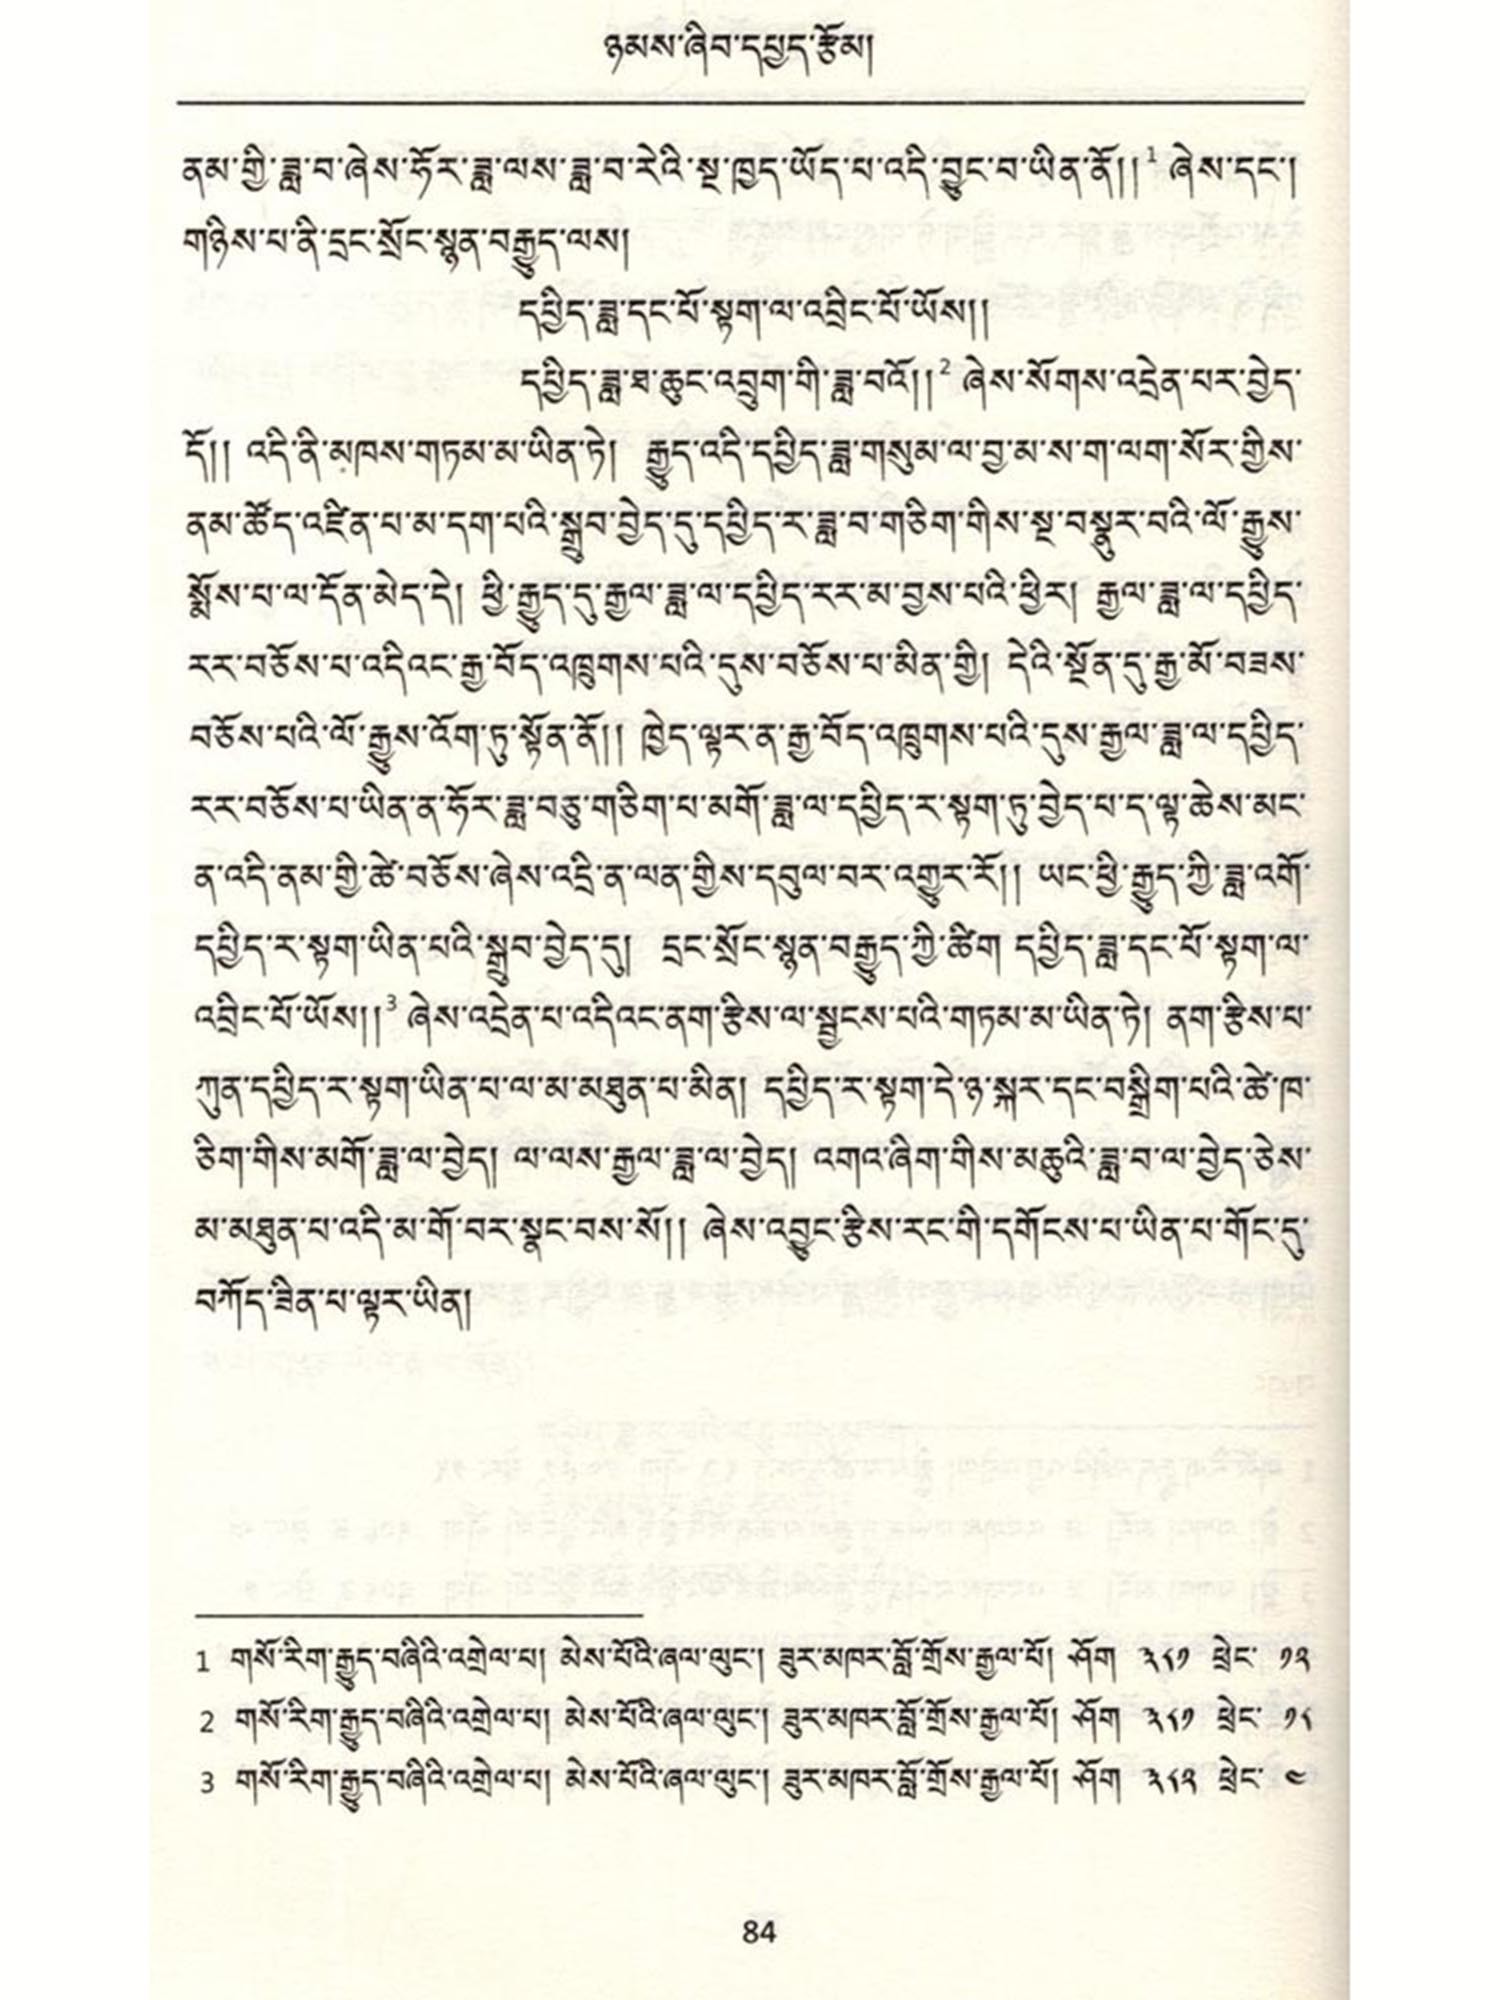 ཉམས་ཞིབ་དཔྱད་རྩོམ།
ནམ་གྱི་ཟླ་བ་ཞེས་ཧོར་ཟླ་ལས་ཟླ་བ་རེའི་སྔ་ཁྱད་ཡོད་པ་འདི་བྱུང་བ་ཡིན་ནོ།།1 ཞེས་དང་།
གཉིས་པ་ནི་དྲང་སྲོང་སྙན་བརྒྱུད་ལས།
དཔྱིད་ཟླ་དང་པོ་སྟག་ལ་འབྲིང་པོ་ཡོས།།
དཔྱིད་ཟླ་ཐ་ཆུང་འབྲུག་གི་ཟླ་བའོ།།2 ཞེས་སོགས་འདྲེན་པར་བྱེད་
དོ།། འདི་ནི་མཁས་གཏམ་མ་ཡིན་ཏེ། རྒྱུད་འདི་དཔྱིད་ཟླ་གསུམ་ལ་བྱ་མ་ས་ག་ལག་སོར་གྱིས་
ནམ་ཚོད་འཛིན་པ་མ་དག་པའི་སྒྲུབ་བྱེད་དུ་དཔྱིད་ར་ཟླ་བ་གཅིག་གིས་སྔ་བསྣུར་བའི་ལོ་རྒྱུས་
སྨོས་པ་ལ་དོན་མེད་དེ། ཕྱི་རྒྱུད་དུ་རྒྱལ་ཟླ་ལ་དཔྱིད་རར་མ་བྱས་པའི་ཕྱིར། རྒྱལ་ཟླ་ལ་དཔྱིད་
རར་བཅོས་པ་འདིའང་རྒྱ་བོད་འཁྲུགས་པའི་དུས་བཅོས་པ་མིན་གྱི། དེའི་སྔོན་དུ་རྒྱ་མོ་བཟས་
བཅོས་པའི་ལོ་རྒྱུས་འོག་ཏུ་སྟོན་ནོ།། ཁྱེད་ལྟར་ན་རྒྱ་བོད་འཁྲུགས་པའི་དུས་རྒྱལ་ཟླ་ལ་དཔྱིད་
རར་བཅོས་པ་ཡིན་ན་ཧོར་ཟླ་བཅུ་གཅིག་པ་མགོ་ཟླ་ལ་དཔྱིད་ར་སྟག་ཏུ་བྱེད་པ་ད་ལྟ་ཆེས་མང་
ན་འདི་ནམ་གྱི་ཚེ་བཅོས་ཞེས་འདྲི་ན་ལན་གྱིས་དབུལ་བར་འགྱུར་རོ།། ཡང་ཕྱི་རྒྱུད་ཀྱི་ཟླ་འགོ་
དཔྱིད་ར་སྟག་ཡིན་པའི་སྒྲུབ་བྱེད་དུ། དྲང་སྲོང་སྙན་བརྒྱུད་ཀྱི་ཚིག དཔྱིད་ཟླ་དང་པོ་སྟག་ལ་
འབྲིང་པོ་ཡོས།།3 ཞེས་འདྲེན་པ་འདིའང་ནག་རྩིས་ལ་སྦྱངས་པའི་གཏམ་མ་ཡིན་ཏེ། ནག་རྩིས་པ་
ཀུན་དཔྱིད་ར་སྟག་ཡིན་པ་ལ་མ་མཐུན་པ་མིན། དཔྱིད་ར་སྟག་དེ་ཉ་སྐར་དང་བསྒྲིག་པའི་ཚེ་ཁ་
ཅིག་གིས་མགོ་ཟླ་ལ་བྱེད། ལ་ལས་རྒྱལ་ཟླ་ལ་བྱེད། འགའ་ཞིག་གིས་མཆུའི་ཟླ་བ་ལ་བྱེད་ཅེས་
མ་མཐུན་པ་འདི་མ་གོ་བར་སྣང་བས་སོ།། ཞེས་འབྱུང་རྩིས་རང་གི་དགོངས་པ་ཡིན་པ་གོང་དུ་
བཀོད་ཟིན་པ་ལྟར་ཡིན།
1 གསོ་རིག་རྒྱུད་བཞིའི་འགྲེལ་པ། མེས་པོའི་ཞལ་ལུང་། ཟུར་མཁར་བློ་གྲོས་རྒྱལ་པོ། ཤོག ༣༨༡ ཕྲེང་ ༡༢
2 གསོ་རིག་རྒྱུད་བཞིའི་འགྲེལ་པ། མེས་པོའི་ཞལ་ལུང་། ཟུར་མཁར་བློ་གྲོས་རྒྱལ་པོ། ཤོག ༣༨༡ ཕྲེང་ ༡༨
3 གསོ་རིག་རྒྱུད་བཞིའི་འགྲེལ་པ། མེས་པོའི་ཞལ་ལུང་། ཟུར་མཁར་བློ་གྲོས་རྒྱལ་པོ། ཤོག ༣༨༢ ཕྲེང་ ༤
84